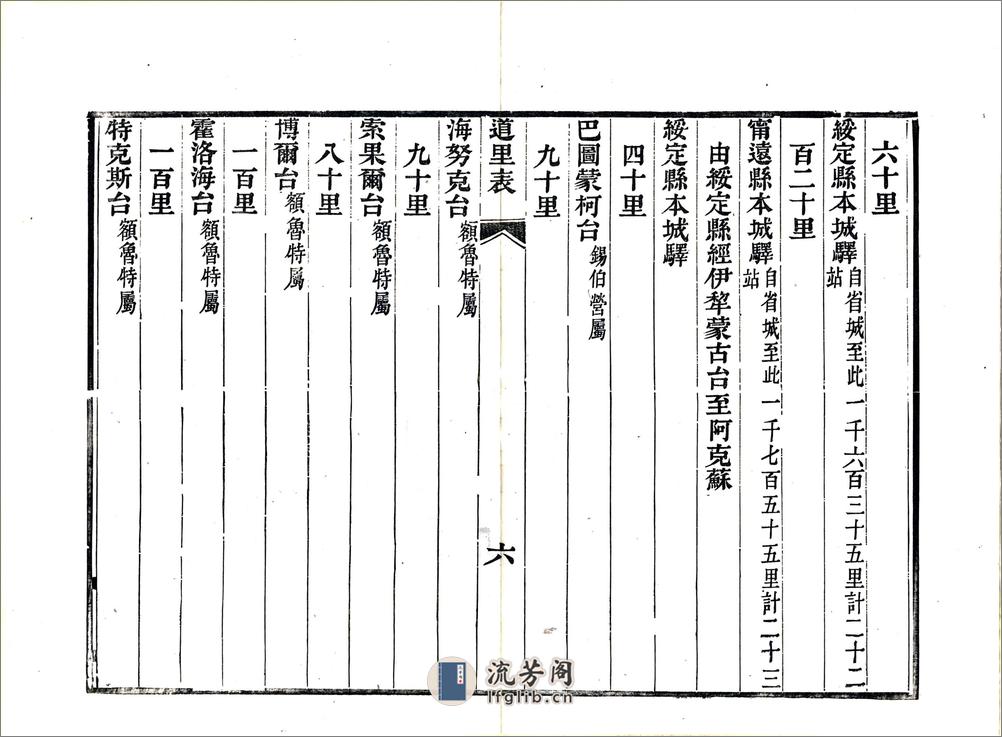 六十里
綏定縣本城驛自省城至此一千六百三十五里計二十二站
百二十里
甯遠縣本城驛自省城至此一千七百五十五里計二十三站
由綏定縣經伊犂蒙古台至阿克蘇
綏定縣本城驛
四十里
巴圖蒙柯台錫伯營屬
九十里
道里表
六
海努克台額魯特屬
九十里
索果爾台額魯特屬
八十里
博爾台額魯特屬
一百里
霍洛海台額魯特屬
一百里
特克斯台額魯特屬
流芳阁
lfglib.cn